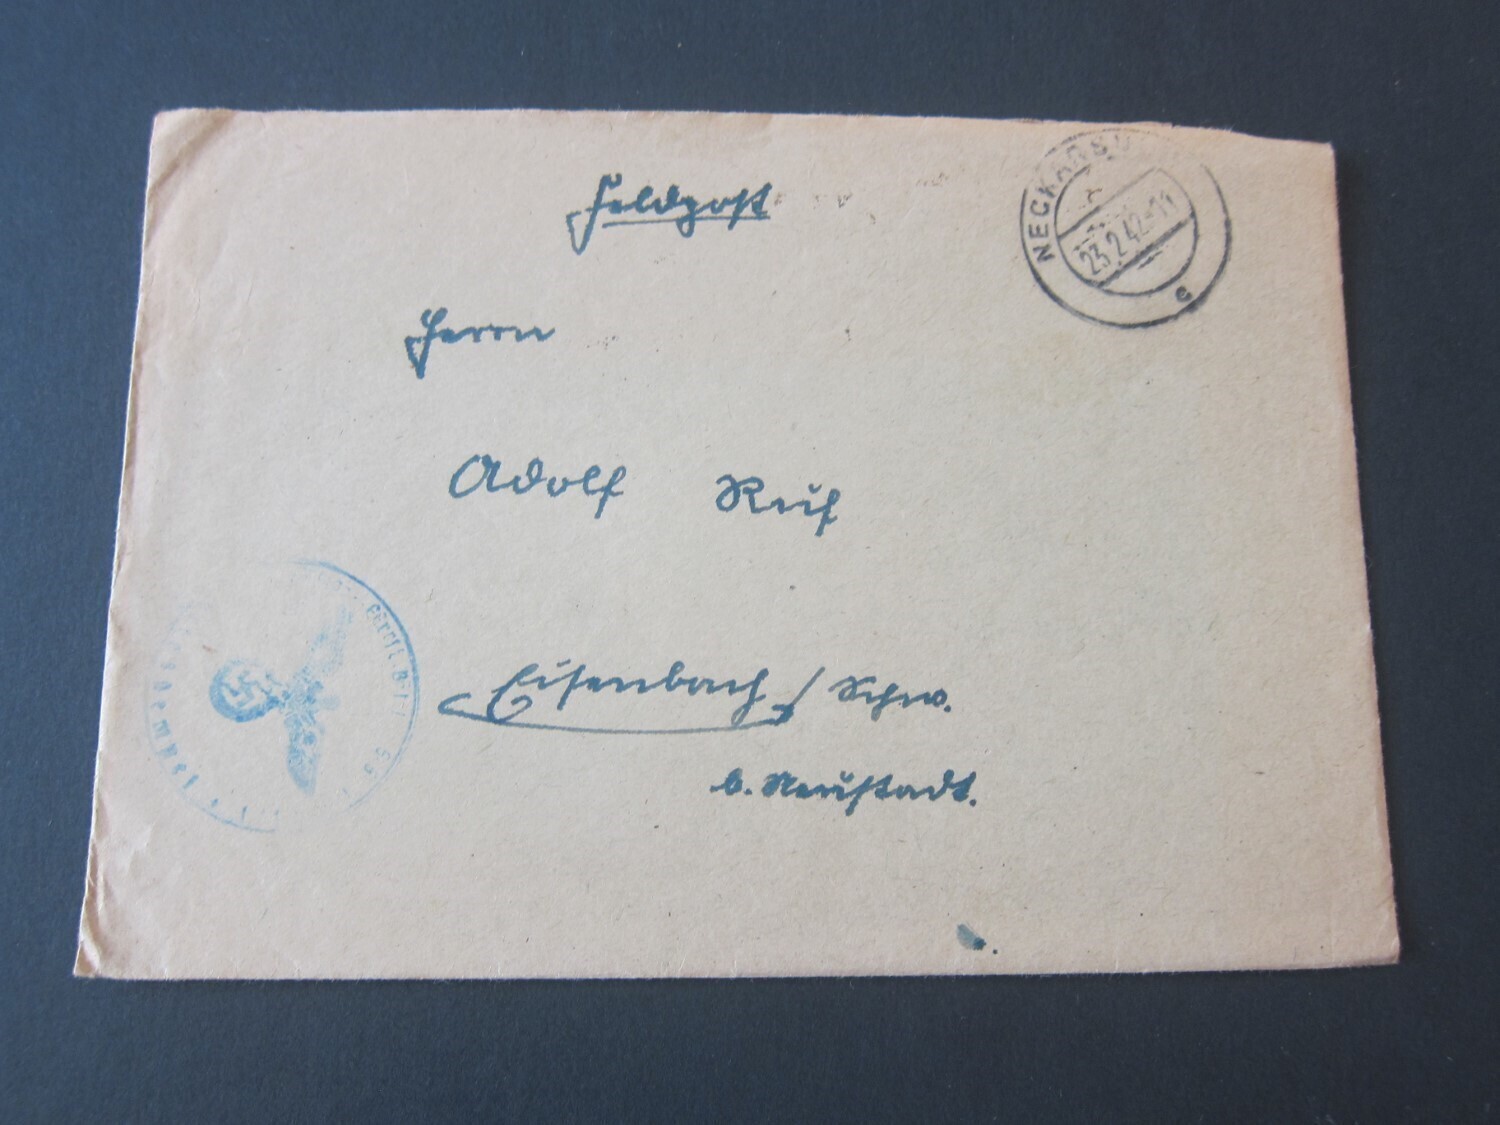 Feldpost
NECKARSU
23.2.42-14
c
Herrn
Adolf Reif
Eisenbach / Schw.
b. Neustadt.